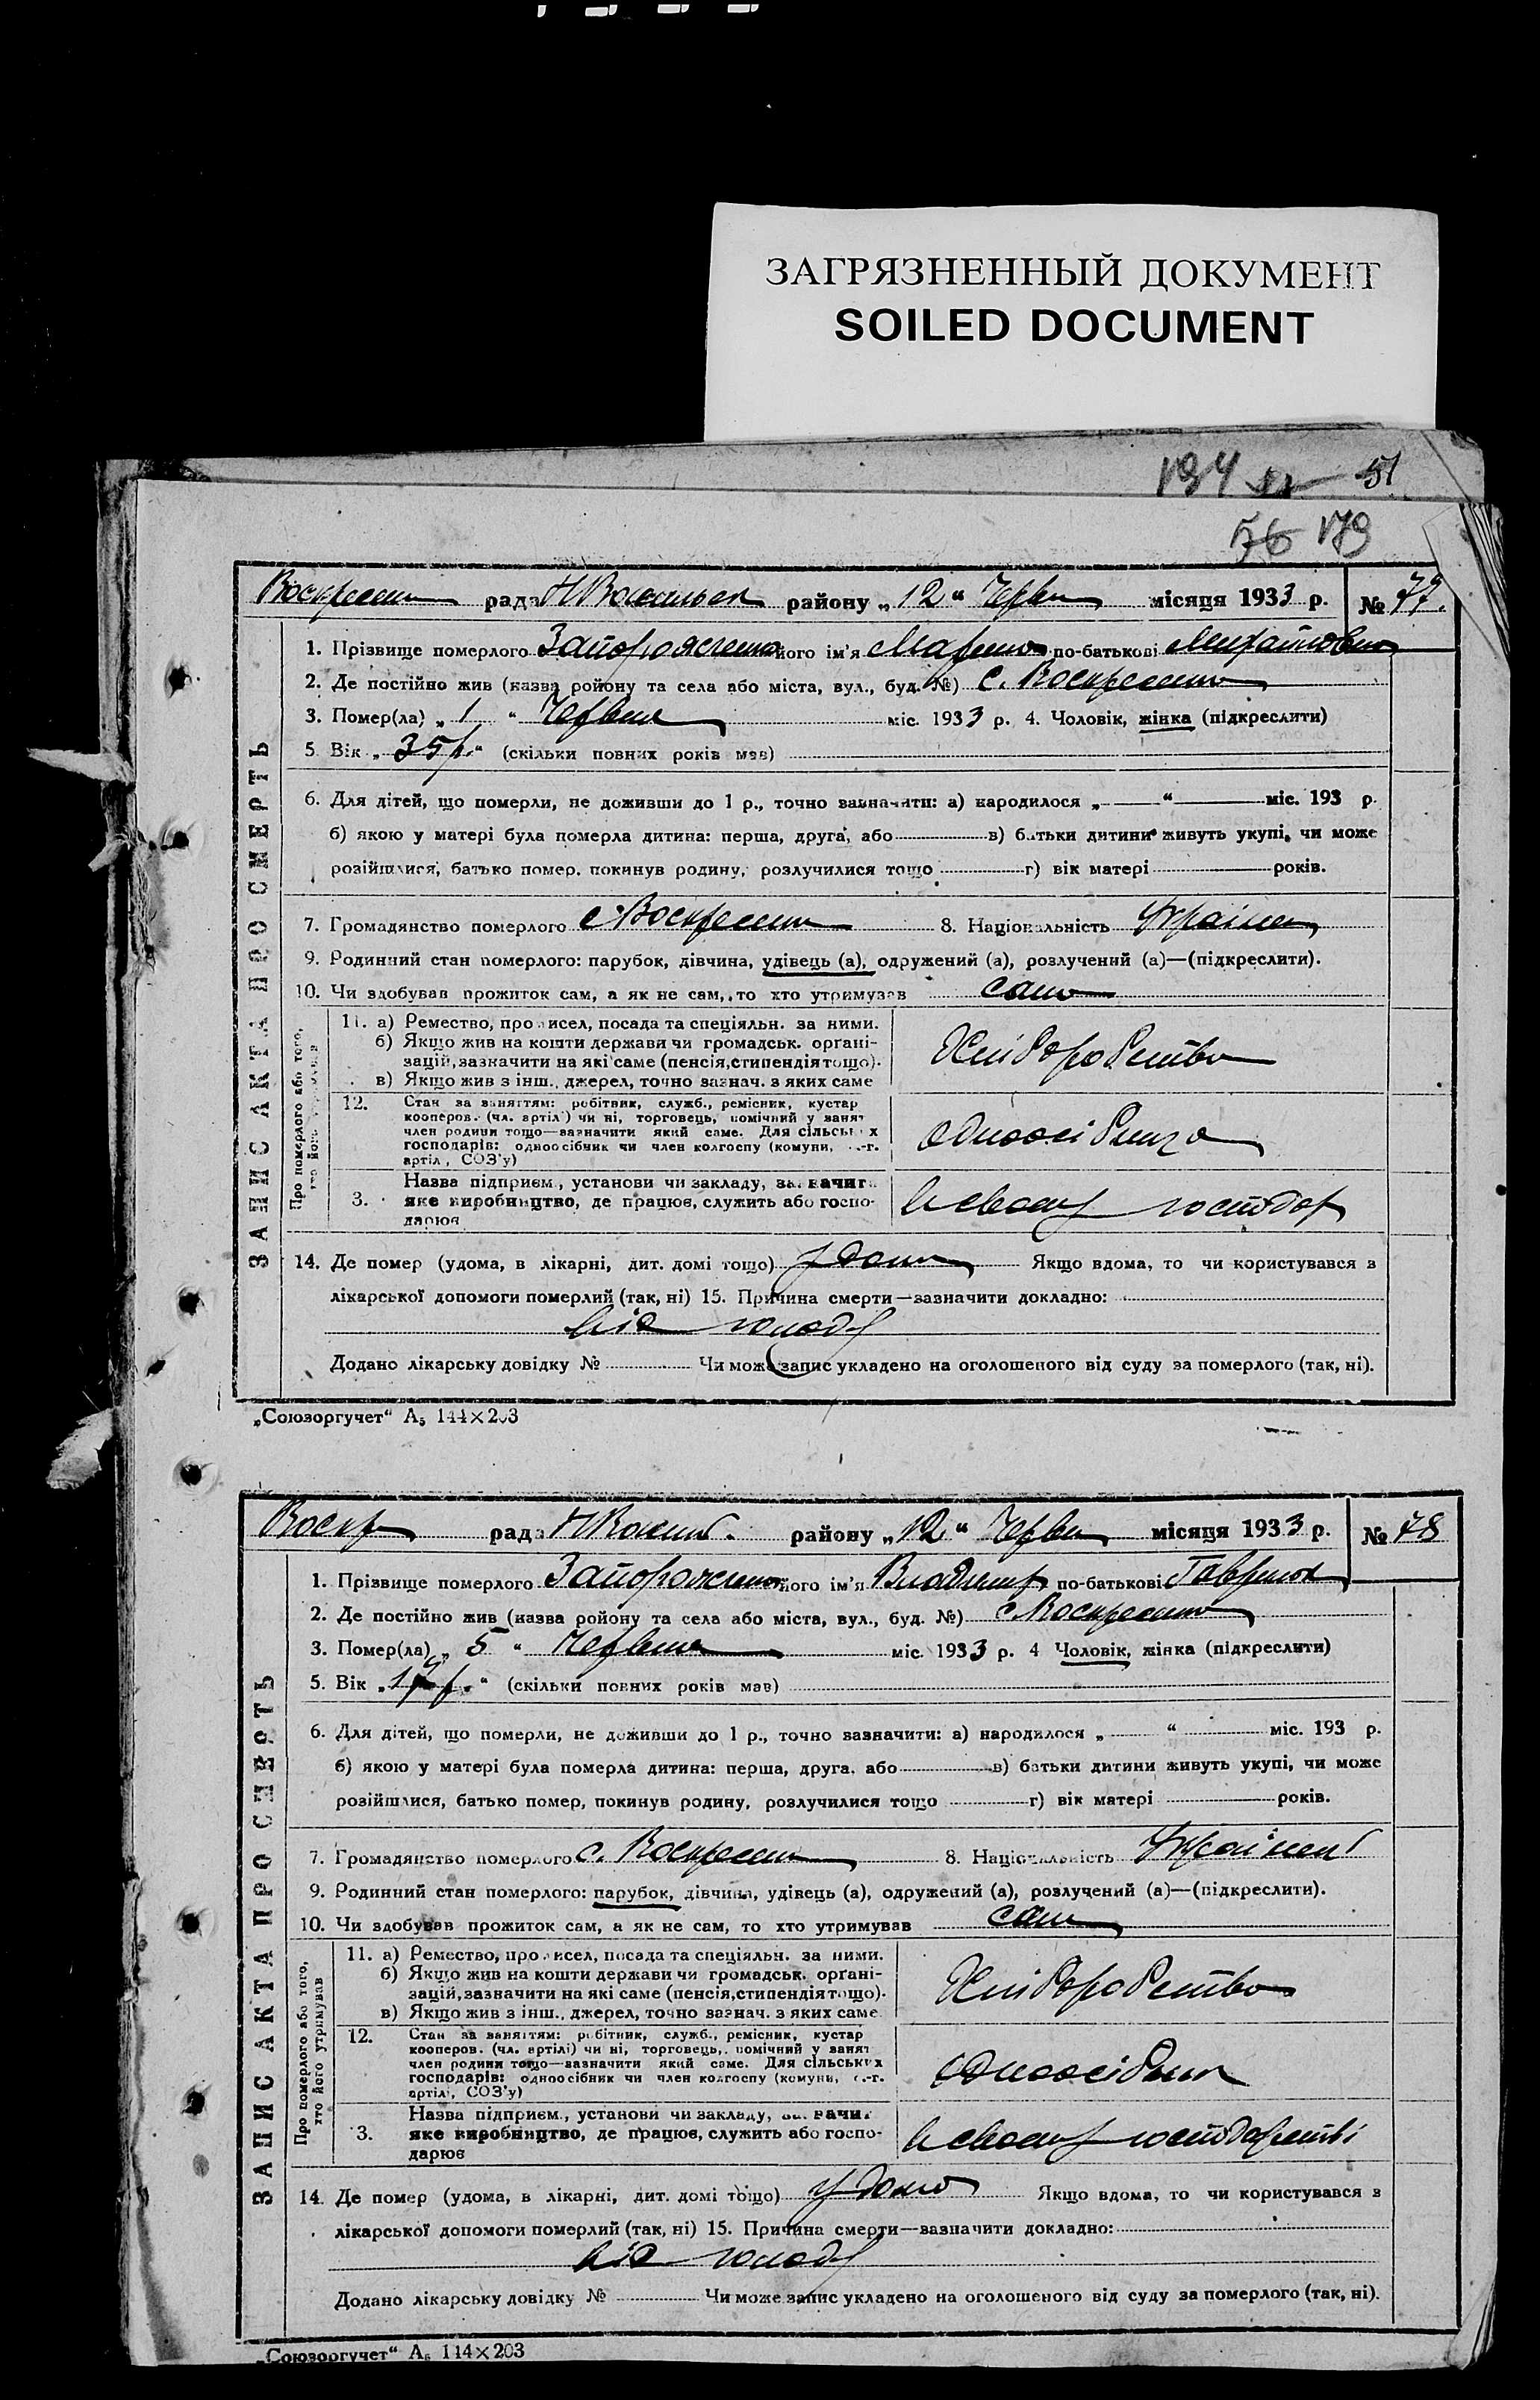 ЗАГРЯЗНЕННЫЙ ДОКУМЕНТ
SOILED DOCUMENT
194 51
56 179
рада району „12“ місяця 1933 р. № 77.
1. Прізвище померлого його ім'я по-батькові
2. Де постійно жив (назва ройону та села або міста, вул., буд. №) с.
3. Помер(ла) „1“ Червня міс. 1933 р. 4. Чоловік, жінка (підкреслити)
5. Вік „35 р.“ (скільки повних років мав)
6. Для дітей, що померли, не доживши до 1 р., точно зазначити: а) народилося „ “ міс. 193 р.
б) якою у матері була померла дитина: перша, друга, або в) батьки дитини живуть укупі, чи може
розійшлися, батько помер, покинув родину, розлучилися тощо г) вік матері років.
7. Громадянство померлого 8. Національність
9. Родинний стан померлого: парубок, дівчина, удівець (а), одружений (а), розлучений (а)—(підкреслити).
10. Чи здобував прожиток сам, а як не сам, то хто утримував сама
ЗАПИС АКТА ПРО СМЕРТЬ
Про померлого або того,
11. а) Ремество, промисел, посада та спеціяльн. за ними.
б) Якщо жив на кошти держави чи громадськ. орґані-
зацій, зазначити на які саме (пенсія, стипендія тощо).
в) Якщо жив з інш., джерел, точно зазнач. з яких саме
Хліборобство
12. Стан за заняттям: робітник, служб., ремісник, кустар
кооперов. (чл. артілі) чи ні, торговець, помічний у занят
член родини тощо—зазначити який саме. Для сільських
господарів: одноосібник чи член колгоспу (комуни, с.-г.
артіл, СОЗ'у)
3. Назва підприєм., установи чи закладу, зазначит
яке виробництво, де працює, служить або госпо-
дарює
в своему господар
14. Де помер (удома, в лікарні, дит. домі тощо) у дома Якщо вдома, то чи користувався з
лікарської допомоги померлий (так, ні) 15. Причина смерти—зазначити докладно:
від голоду
Додано лікарську довідку № Чи може запис укладено на оголошеного від суду за померлого (так, ні).
„Союзоргучет“ А₅ 144×203
рада району „12“ місяця 1933 р. № 78
1. Прізвище померлого його ім'я по-батькові
2. Де постійно жив (назва ройону та села або міста, вул., буд. №) с.
3. Помер(ла) „5“ Червня міс. 1933 р. 4 Чоловік, жінка (підкреслити)
5. Вік (скільки повних років мав)
6. Для дітей, що померли, не доживши до 1 р., точно зазначити: а) народилося „ “ міс. 193 р.
б) якою у матері була померла дитина: перша, друга, або в) батьки дитини живуть укупі, чи може
розійшлися, батько помер, покинув родину, розлучилися тощо г) вік матері років.
7. Громадянство померлого с. 8. Національність
9. Родинний стан померлого: парубок, дівчина, удівець (а), одружений (а), розлучений (а)—(підкреслити).
10. Чи здобував прожиток сам, а як не сам, то хто утримував сам
ЗАПИС АКТА ПРО СМЕРТЬ
Про померлого або того,
хто його утримував
11. а) Ремество, промисел, посада та спеціяльн. за ними.
б) Якщо жив на кошти держави чи громадськ. орґані-
зацій, зазначити на які саме (пенсія, стипендія тощо).
в) Якщо жив з інш., джерел, точно зазнач. з яких саме
Хліборобство
12. Стан за заняттям: робітник, служб., ремісник, кустар
кооперов. (чл. артілі) чи ні, торговець, помічний у занят
член родини тощо—зазначити який саме. Для сільських
господарів: одноосібник чи член колгоспу (комуни, с.-г.
артілі, СОЗ'у)
одноосібник
3. Назва підприєм., установи чи закладу, зазначит
яке виробництво, де працює, служить або госпо-
дарює
в своему господарстві
14. Де помер (удома, в лікарні, дит. домі тощо) у дома Якщо вдома, то чи користувався з
лікарської допомоги померлий (так, ні) 15. Причина смерти—зазначити докладно:
від голоду
Додано лікарську довідку № Чи може запис укладено на оголошеного від суду за померлого (так, ні).
„Союзоргучет“ А₅ 144×203